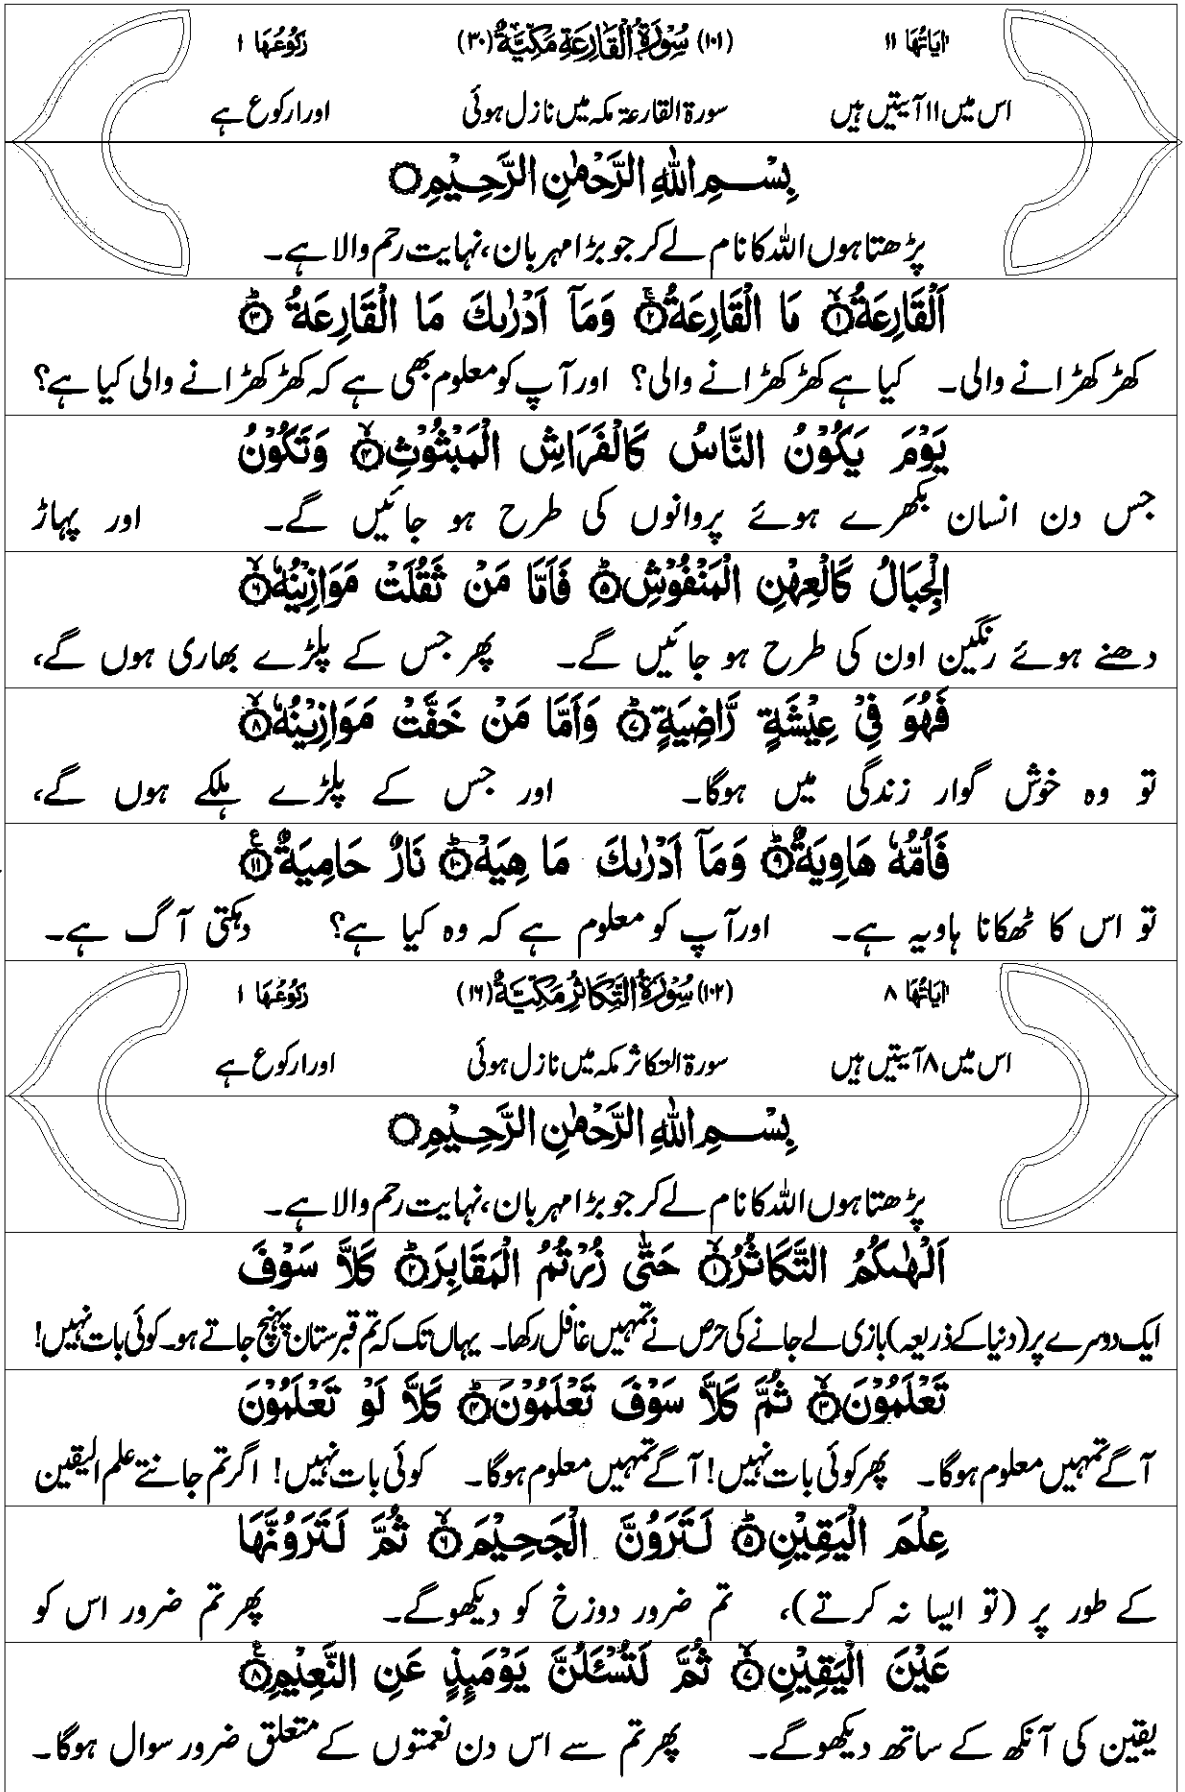 اٰیَاتُهَا ۱۱ (۱۰۱) سُوْرَةُ الْقَارِعَةِ مَكِّیَّةٌ (۳۰) رُكُوْعُهَا ۱
اس میں ۱۱ آیتیں ہیں سورۃ القارعۃ مکہ میں نازل ہوئی اور ۱ رکوع ہے
بِسْمِ اللّٰهِ الرَّحْمٰنِ الرَّحِیْمِ○
پڑھتا ہوں اللہ کا نام لے کر جو بڑا مہربان، نہایت رحم والا ہے۔
اَلْقَارِعَةُ۝۱ۙ مَا الْقَارِعَةُ۝۲ۚ وَمَاۤ اَدْرٰىكَ مَا الْقَارِعَةُ۝۳ؕ
کھڑکھڑانے والی۔ کیا ہے کھڑکھڑانے والی؟ اور آپ کو معلوم بھی ہے کہ کھڑکھڑانے والی کیا ہے؟
یَوْمَ یَكُوْنُ النَّاسُ كَالْفَرَاشِ الْمَبْثُوْثِ۝۴ۙ وَتَكُوْنُ
جس دن انسان بکھرے ہوئے پروانوں کی طرح ہو جائیں گے۔ اور پہاڑ
الْجِبَالُ كَالْعِهْنِ الْمَنْفُوْشِ۝۵ؕ فَاَمَّا مَنْ ثَقُلَتْ مَوَازِیْنُهٗ۝۶ۙ
دھنے ہوئے رنگین اون کی طرح ہو جائیں گے۔ پھر جس کے پلڑے بھاری ہوں گے،
فَهُوَ فِیْ عِیْشَةٍ رَّاضِیَةٍ۝۷ؕ وَاَمَّا مَنْ خَفَّتْ مَوَازِیْنُهٗ۝۸ۙ
تو وہ خوش گوار زندگی میں ہوگا۔ اور جس کے پلڑے ہلکے ہوں گے،
فَاُمُّهٗ هَاوِیَةٌ۝۹ؕ وَمَاۤ اَدْرٰىكَ مَا هِیَهْ۝۱۰ؕ نَارٌ حَامِیَةٌ۝۱۱۠
تو اس کا ٹھکانا ہاویہ ہے۔ اور آپ کو معلوم ہے کہ وہ کیا ہے؟ دہکتی آگ ہے۔
اٰیَاتُهَا ۸ (۱۰۲) سُوْرَةُ التَّكَاثُرِ مَكِّیَّةٌ (۱۶) رُكُوْعُهَا ۱
اس میں ۸ آیتیں ہیں سورۃ التکاثر مکہ میں نازل ہوئی اور ۱ رکوع ہے
بِسْمِ اللّٰهِ الرَّحْمٰنِ الرَّحِیْمِ○
پڑھتا ہوں اللہ کا نام لے کر جو بڑا مہربان، نہایت رحم والا ہے۔
اَلْهٰىكُمُ التَّكَاثُرُ۝۱ۙ حَتّٰی زُرْتُمُ الْمَقَابِرَ۝۲ؕ كَلَّا سَوْفَ
ایک دوسرے پر (دنیا کے ذریعہ) بازی لے جانے کی حرص نے تمہیں غافل رکھا۔ یہاں تک کہ تم قبرستان پہنچ جاتے ہو۔ کوئی بات نہیں!
تَعْلَمُوْنَ۝۳ۙ ثُمَّ كَلَّا سَوْفَ تَعْلَمُوْنَ۝۴ؕ كَلَّا لَوْ تَعْلَمُوْنَ
آگے تمہیں معلوم ہوگا۔ پھر کوئی بات نہیں! آگے تمہیں معلوم ہوگا۔ کوئی بات نہیں! اگر تم جانتے علم الیقین
عِلْمَ الْیَقِیْنِ۝۵ؕ لَتَرَوُنَّ الْجَحِیْمَ۝۶ۙ ثُمَّ لَتَرَوُنَّهَا
کے طور پر (تو ایسا نہ کرتے)، تم ضرور دوزخ کو دیکھوگے۔ پھر تم ضرور اس کو
عَیْنَ الْیَقِیْنِ۝۷ۙ ثُمَّ لَتُسْـَٔلُنَّ یَوْمَىِٕذٍ عَنِ النَّعِیْمِ۝۸۠
یقین کی آنکھ کے ساتھ دیکھوگے۔ پھر تم سے اس دن نعمتوں کے متعلق ضرور سوال ہوگا۔